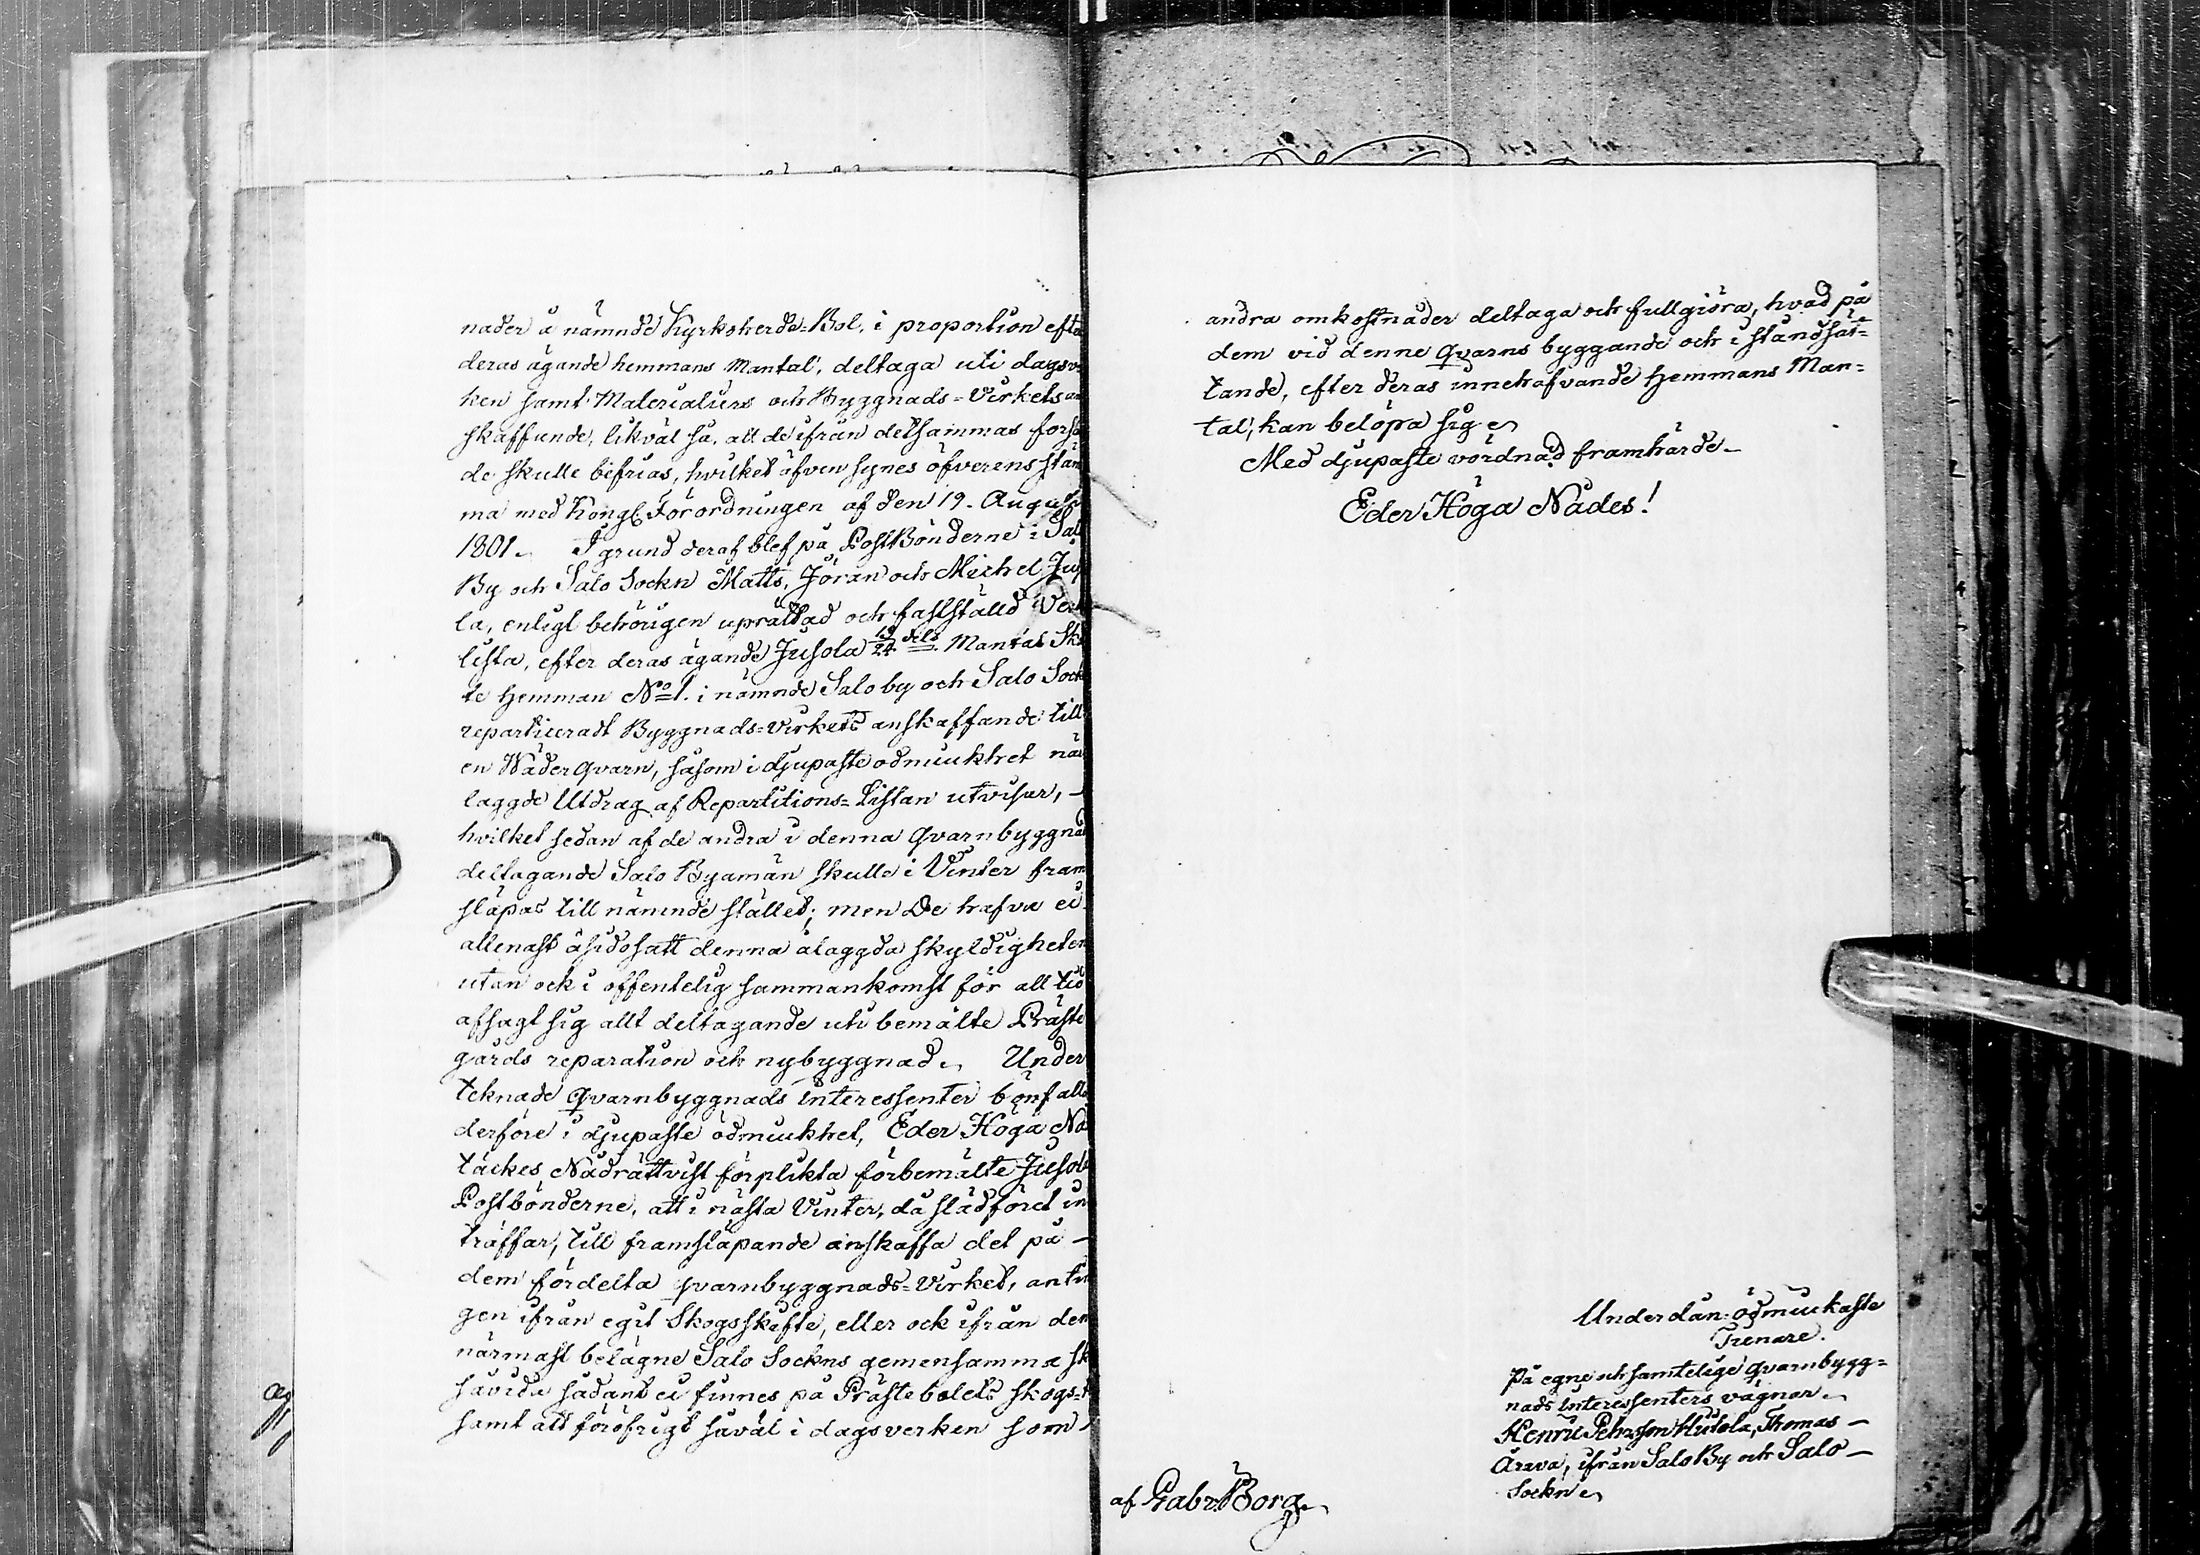 nader å nämnde Kyrkoherde-Bol, i proportion efte
deras ägande hemmans Mantal, deltaga uti dagsv
ken samt Materialiers och Byggnads-Virkets an
skaffande, likväl så, att de ifrån detsammas forsl
de skulle befrias, hvilket äfven synes öfverensstäm
ma med Kongl. Förordningen af den 19. August
1801. I grund deraf blef på PostBönderne i Sal
By och Salo Sockn Matts, Jöran och Michel Juso
la, enligt behörigen uprättad och fastställd Verk
lista, efter deras ägande Jusola 19/24 dels Mantal Ska
te Hemman No 1. i nämnde Salo by och Salo Sock
reparticeradt Byggnads-Virkets anskaffande till
en Wäderqvarn, såsom i djupaste ödmiukhet när
laggde Utdrag af Repartitions-Listan utvisar,
hvilket sedan af de andra i denna qvarnbyggnad
deltagande Salo Byamän skulle i Vinter fram
släpas till nämnde stället; men De hafva ei
allenast åsidosatt denna ålaggda skyldigheten
utan ock i offentelig sammankomst för all tid
afsagt sig allt deltagande uti bemälte Präste
gårds reparation och nybyggnad. Under
teknade qvarnbyggnads interessenter bönfalla
derföre i djupaste ödmiukhet, Eder Höga Nå
täckes Nådrättvist förplikta förbemälte Jusola
Postbönderne, att i nästa Vinter, då slädföret in
träffar, till framsläpande anskaffa det på -
dem fördelta qvarnbyggnads-Virket, antin
gen ifrån egit Skogsskifte, eller ock ifrån den
närmast belägne Salo Sockns gemensamma sk
såvida sådant ei finnes på Prästebolets skogs-
samt att föröfrigt såväl i dagsverken som
andra omkostnader deltaga och fullgiöra, hvad på
dem vid denne qvarns byggande och iståndsät-
tande, efter deras innehafvande Hemmans Man-
tal, kan belöpa sig.
Med djupaste vördnad framhärde
Eder Höga Nådes!
Underdån. ödmiukaste
Tienare.
På egne och samtelige qvarnbygg-
nads interessenters vägnar
Henric Pehrsson Hutola, Thomas
Arava, ifrån Salo By och Salo
Sockn
af Gabr. Borg